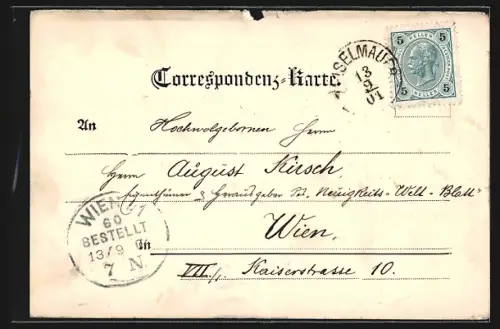 Correspondenz-Karte.
5 5
HELLER
5 5
13
9
01
An
Hochwolgebornen Herrn
Herrn August Kirsch
Eigenthümer & Herausgeber des „Neuigkeits-Welt-Blatt"
Wien.
in VII/1. Kaiserstrasse 10.
WIEN 7/1
60
BESTELLT
13/9
7 N.